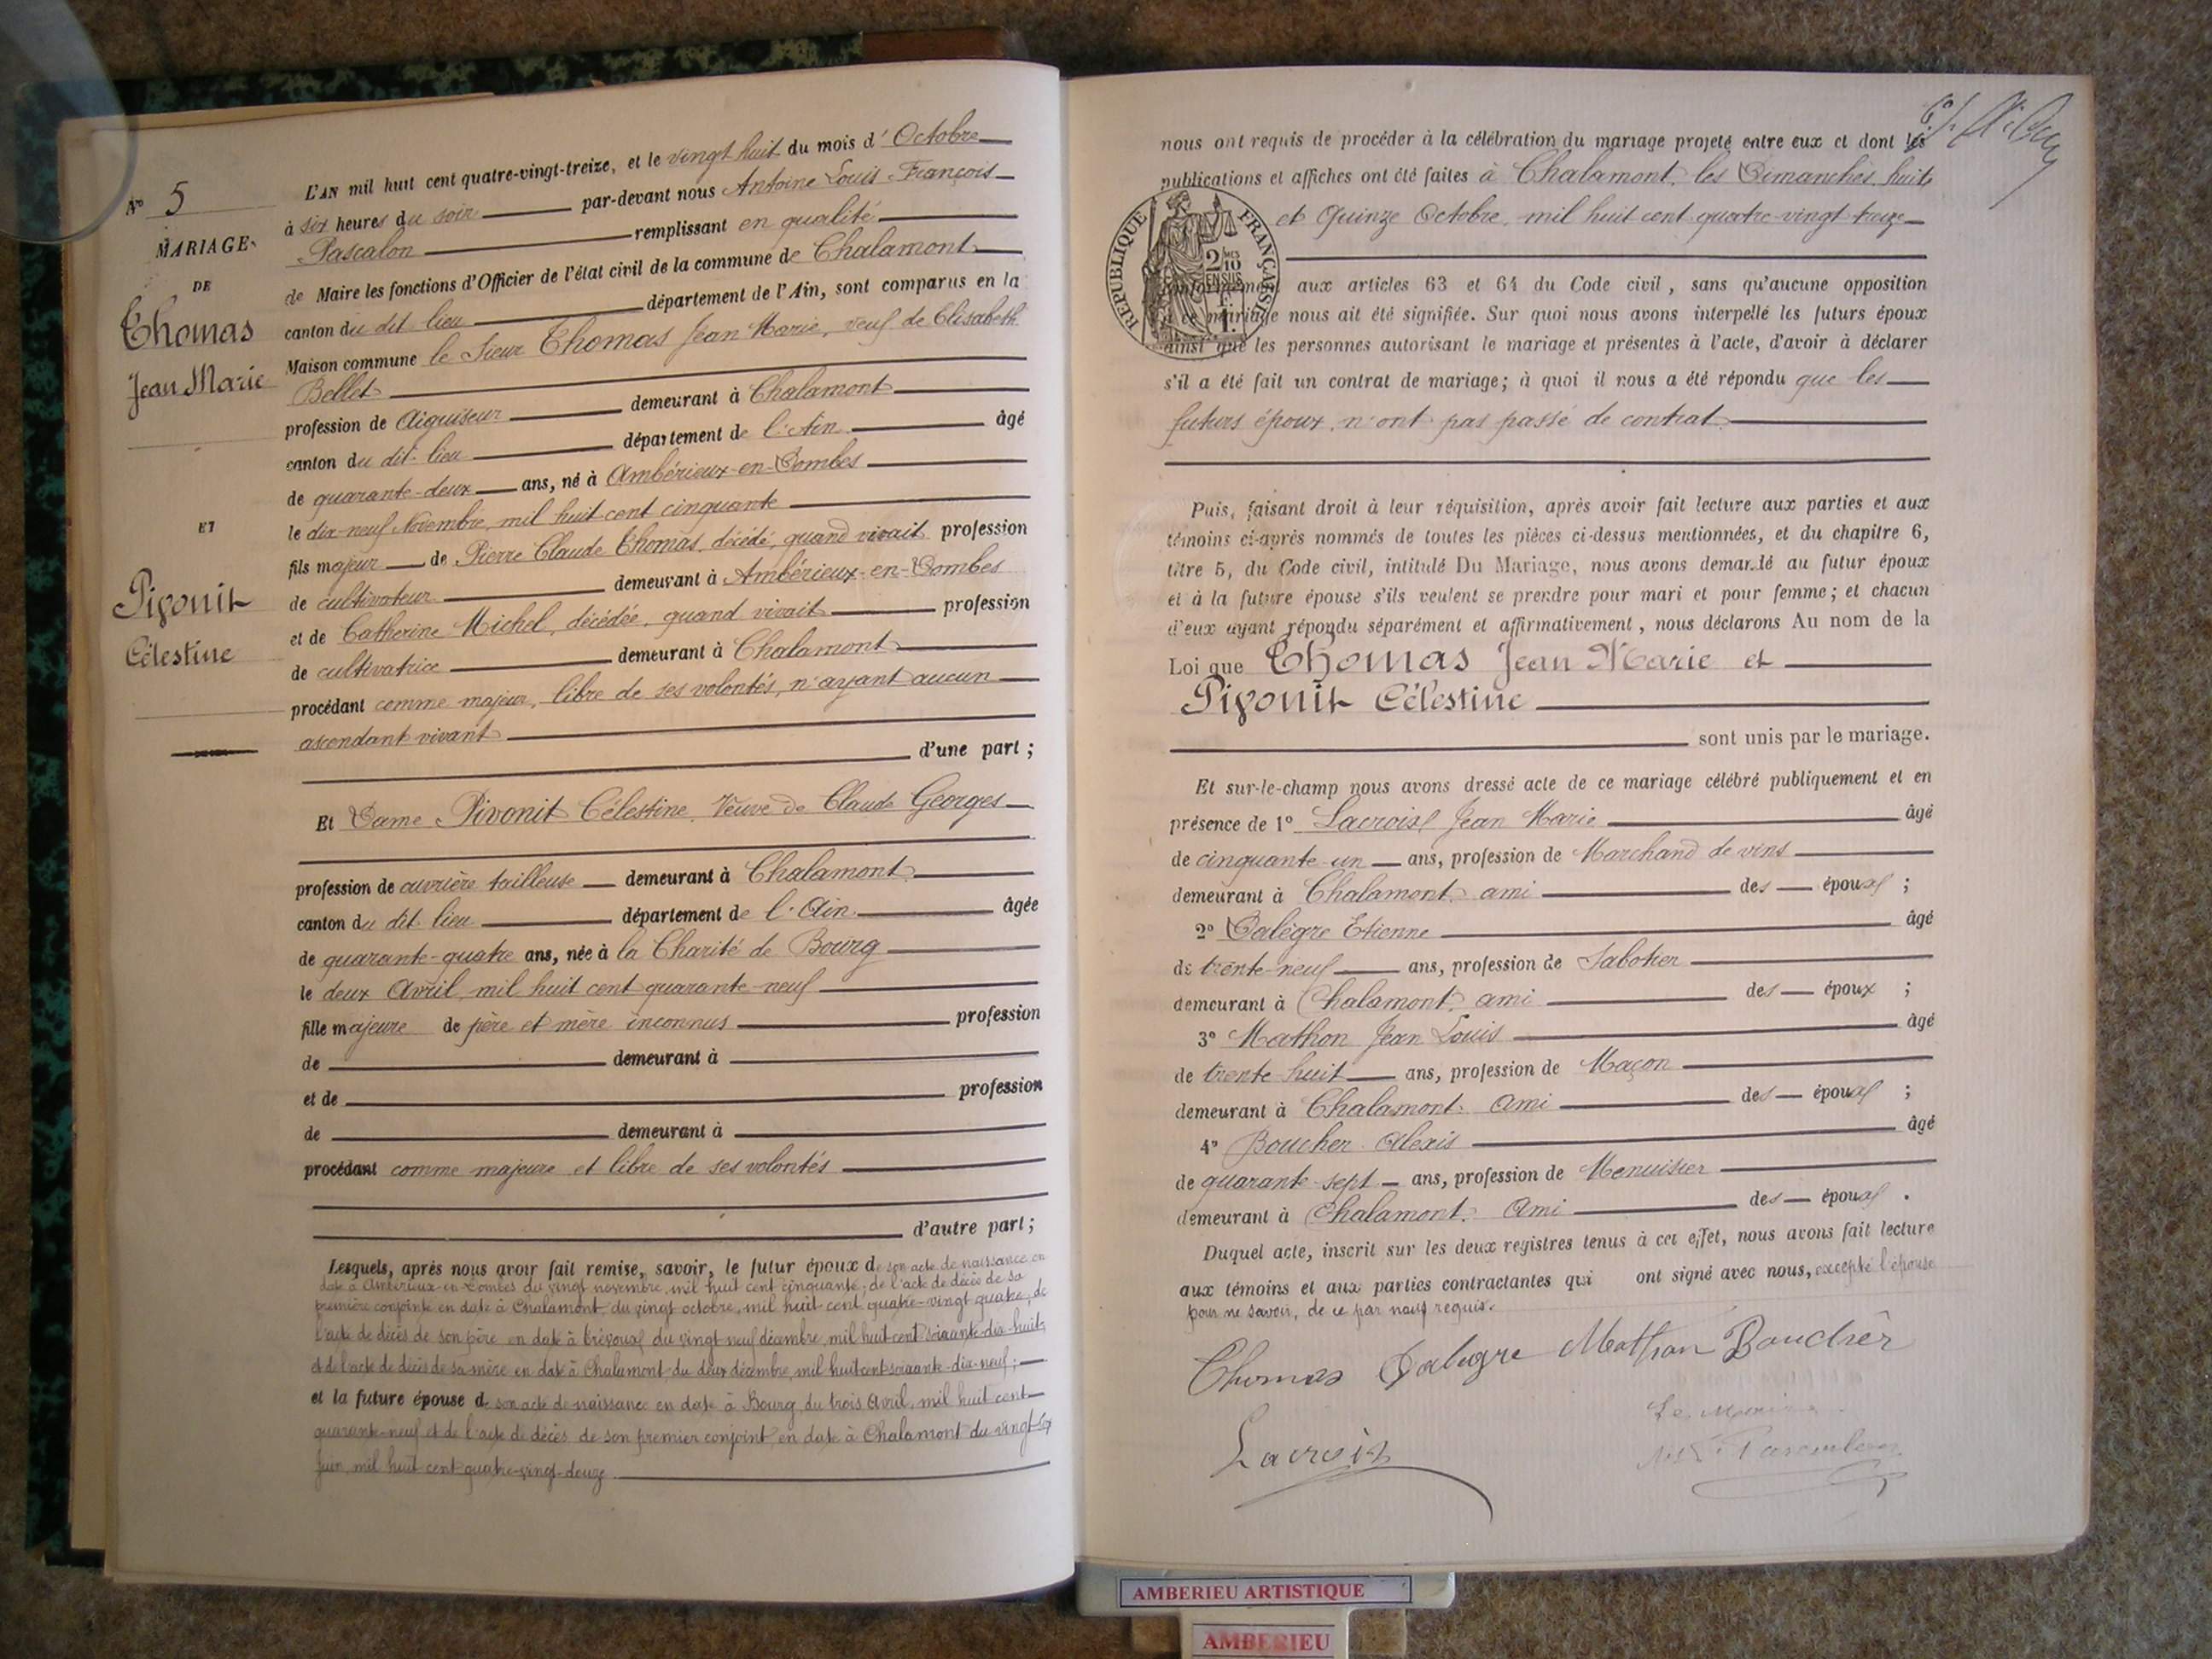 No 5
MARIAGE
DE
Thomas
Jean Marie
ET
Pivonit
Célestine
L'AN mil huit cent quatre-vingt-treize, et le vingt huit du mois d'Octobre
à six heures du soir par-devant nous Antoine Louis François
Pascalon remplissant en qualité
de Maire les fonctions d'Officier de l'état civil de la commune de Chalamont
canton du dit lieu département de l'Ain, sont comparus en la
Maison commune le Sieur Thomas Jean Marie, veuf de Elisabeth
Bellet
profession de Aiguiseur demeurant à Chalamont
canton du dit lieu département de l'Ain âgé
de quarante-deux ans, né à Ambérieux-en-Dombes
le dix-neuf Novembre, mil huit cent cinquante
fils majeur de Pierre Claude Thomas, décédé, quand vivait profession
de cultivateur demeurant à Ambérieux-en-Dombes
et de Catherine Michel, décédée, quand vivait profession
de cultivatrice demeurant à Chalamont
procédant comme majeur, libre de ses volontés, n'ayant aucun
ascendant vivant
d'une part ;
Et Dame Pivonit Célestine, Veuve de Claude Georges
profession de ouvrière tailleuse demeurant à Chalamont
canton du dit lieu département de l'Ain âgée
de quarante-quatre ans, née à la Charité de Bourg
le deux Avril, mil huit cent quarante-neuf
fille majeure de père et mère inconnus profession
de demeurant à
et de profession
de demeurant à
procédant comme majeure et libre de ses volontés
d'autre part ;
Lesquels, après nous avoir fait remise, savoir, le futur époux de son acte de naissance en
date à Ambérieux-en-Dombes du vingt novembre, mil huit cent cinquante ; de l'acte de décès de sa
première conjointe en date à Chalamont, du vingt octobre, mil huit cent quatre-vingt quatre, de
l'acte de décès de son père en date à Trévoux du vingt neuf décembre, mil huit cent soixante-dix-huit,
et de l'acte de décès de sa mère en date à Chalamont du deux décembre, mil huit cent soixante-dix-neuf ;
et la future épouse de son acte de naissance en date à Bourg du trois Avril, mil huit cent
quarante-neuf et de l'acte de décès de son premier conjoint en date à Chalamont du vingt-six
Juin, mil huit cent quatre-vingt-douze
nous ont requis de procéder à la célébration du mariage projeté entre eux et dont les
publications et affiches ont été faites à Chalamont, les Dimanches, huit
et Quinze Octobre, mil huit cent quatre-vingt treize
REPUBLIQUE FRANÇAISE
2 10
EN SUS
conformément aux articles 63 et 64 du Code civil, sans qu'aucune opposition
à ce mariage nous ait été signifiée. Sur quoi nous avons interpellé les futurs époux
ainsi que les personnes autorisant le mariage et présentes à l'acte, d'avoir à déclarer
s'il a été fait un contrat de mariage ; à quoi il nous a été répondu que les
futurs époux, n'ont pas passé de contrat
Puis, faisant droit à leur réquisition, après avoir fait lecture aux parties et aux
témoins ci-après nommés de toutes les pièces ci-dessus mentionnées, et du chapitre 6,
titre 5, du Code civil, intitulé Du Mariage, nous avons demandé au futur époux
et à la future épouse s'ils veulent se prendre pour mari et pour femme ; et chacun
d'eux ayant répondu séparément et affirmativement, nous déclarons Au nom de la
Loi que Thomas Jean Marie et
Pivonit Célestine
sont unis par le mariage.
Et sur-le-champ nous avons dressé acte de ce mariage célébré publiquement et en
présence de 1° Lacroix Jean Marie âgé
de cinquante-un ans, profession de Marchand de vins
demeurant à Chalamont, ami des époux ;
2° Dalègre Etienne âgé
de trente-neuf ans, profession de Sabotier
demeurant à Chalamont, ami des époux ;
3° Mathon Jean Louis âgé
de trente huit ans, profession de Maçon
demeurant à Chalamont. Ami des époux ;
4° Boucher Alexis âgé
de quarante-sept ans, profession de Menuisier
demeurant à Chalamont. Ami des époux .
Duquel acte, inscrit sur les deux registres tenus à cet effet, nous avons fait lecture
aux témoins et aux parties contractantes qui ont signé avec nous, excepté l'épouse
pour ne savoir, de ce par nous requis.
Thomas Dalegre Mathon Boucher
Lacroix
Le Maire
Pascalon
AMBERIEU ARTISTIQUE
AMBERIEU